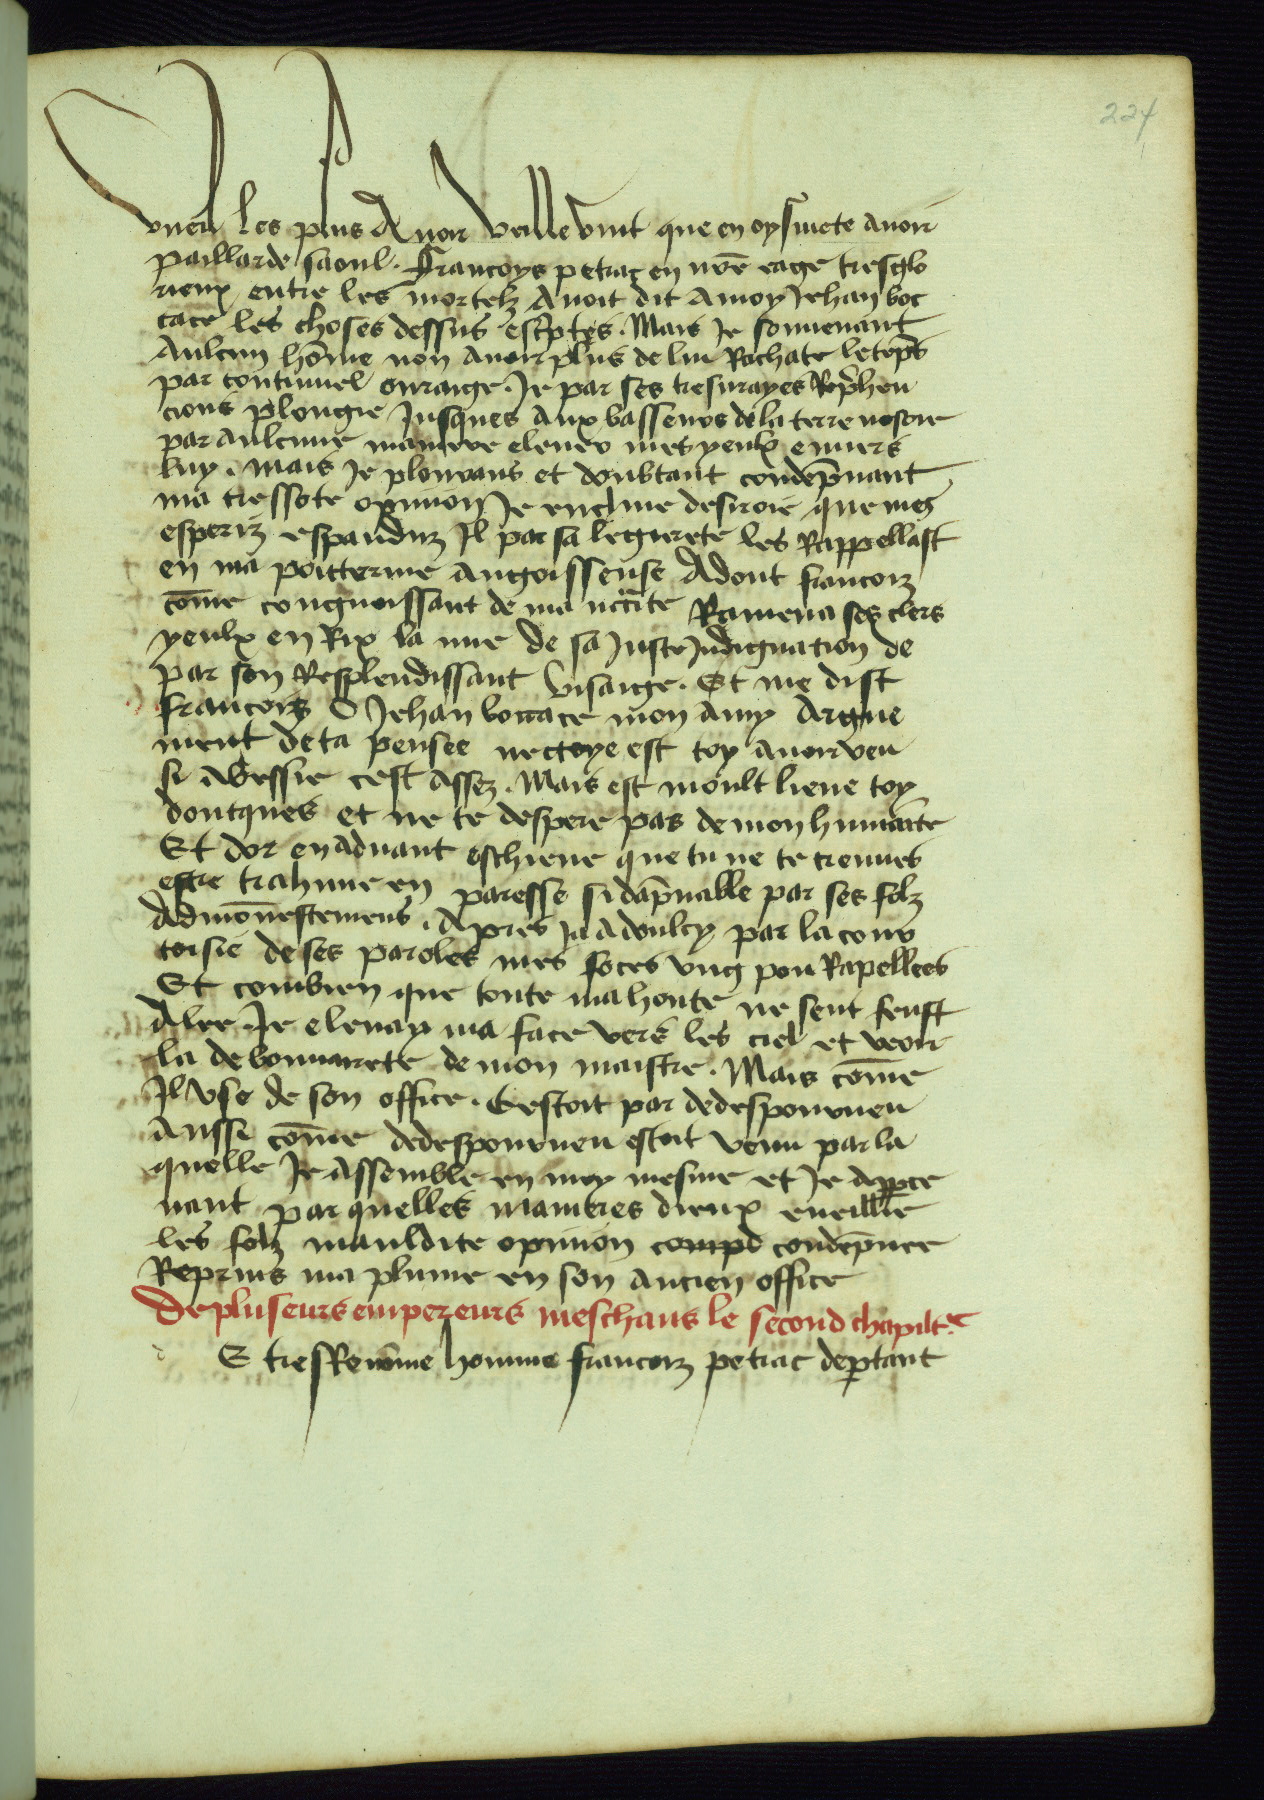 224
uneu les plus Avoir veille vint que en oysiuete avoir
paillarde saoul. Francoys petrac en nr̄e eage tresglo
rieux entre les mortelz Avoit dit A moy Jehan boc
cace les choses dessus escp̄tes. Mais Je souuenant
Aulcun hōme non avoir plus de lui Rachate le tēps
par continuel ouraige. Je par ses tresurayes Rep̄hen
cions plongie Jusques Aux basseurs de la terre nosoie
par Aulcune maniere eleuer mes yeulx enuers
luy. Mais Je plourans et doubtant condēpnant
ma tressote opinion Je encline desiroie que mes
esperiz espanduz Il par sa legierete les Rappellast
en ma poitterine Angoisseuse Adont francoiz
cōme congnoissant de ma Ramena ses clers
yeulx en Rix la nue de sa Juste Indignation de
par son Resplendissant visaige. Et me dist
francoiz O Jehan boccace mon Amy Argue
ment de ta pensee nectoye est toy Avoir veu
si Abessie cest Assez. Mais est moult lieue toy
doncques et ne te despere pas de mon humāīte
Et dor en Aduant eschieue que tu ne te treuues
estre trahinne en paresse si dāpnable par ses folz
Admōnestemens. Apres Ja Adoulcy par la cour
toisie de ses paroles mes foces vng pou Rapellees
Et combien que toute ma honte ne sent feust
Alee. Je eleuay ma face vers les ciel et veoir
la debonnairete de mon maistre. Mais cōme
Il vse de son office. Cestoit par dedespourueu
Aussi cōme dedespourueu estoit venu par la
quelle Je Assemble en moy mesme et Je Apperce
uant par quelles manieres dieux eueille
les folz mauldite opinion condēpnee
Reprins ma plume en son Ancien office
De pluseurs empereurs meschans le second chapilt.e
E tresRenōme homme francoiz petrac dep̄tant